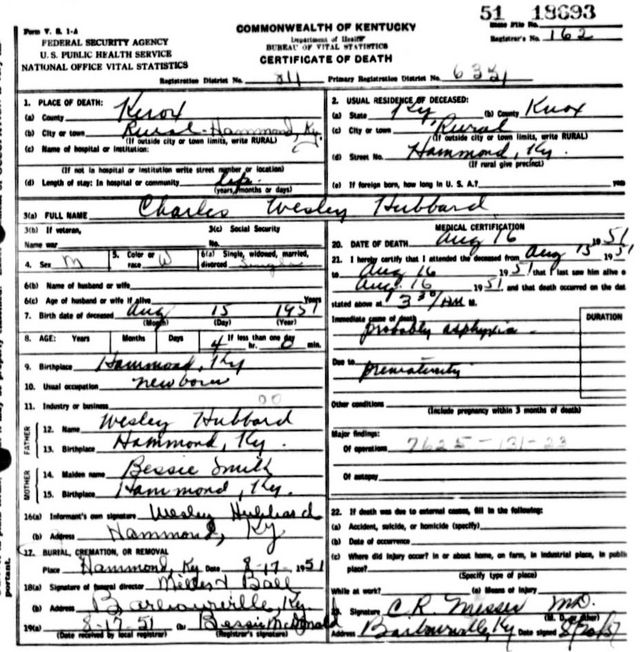 51 18693
Form V. S. 1-A
COMMONWEALTH OF KENTUCKY
State File No.
FEDERAL SECURITY AGENCY
Department of Health
Registrar's No. 162
U. S. PUBLIC HEALTH SERVICE
BUREAU OF VITAL STATISTICS
NATIONAL OFFICE VITAL STATISTICS
CERTIFICATE OF DEATH
Registration District No. 211 Primary Registration District No.
1. PLACE OF DEATH:
(a) County Knox
(b) City or town Rural-Hammond, Ky.
(If outside city or town limits, write RURAL)
(c) Name of hospital or institution:
(If not in hospital or institution write street number or location)
(d) Length of stay: In hospital or community life
(years, months or days)
2. USUAL RESIDENCE OF DECEASED:
(a) State Ky (b) County Knox
(c) City or town Rural
(If outside city or town limits, write RURAL)
(d) Street No. Hammond, Ky.
(If rural give precinct)
(e) If foreign born, how long in U. S. A.?
3(a) FULL NAME Charles Wesley Hubbard
3(b) If veteran,
Name war
3(c) Social Security
No.
4. Sex M
5. Color or
race W
6(a) Single, widowed, married,
divorced Single
6(b) Name of husband or wife
6(c) Age of husband or wife if alive Years
7. Birth date of deceased Aug 15 1951
(Month) (Day) (Year)
8. AGE: Years Months Days If less than one day
4 hr. 0 min.
9. Birthplace Hammond, Ky
10. Usual occupation newborn
11. Industry or business 00
FATHER
12. Name Wesley Hubbard
13. Birthplace Hammond, Ky.
MOTHER
14. Maiden name Bessie Smith
15. Birthplace Hammond, Ky.
16(a) Informant's own signature Wesley Hubbard
(b) Address Hammond, Ky
17. BURIAL, CREMATION, OR REMOVAL
Place Hammond, Ky Date 8-17 1951
18(a) Signature of funeral director Miller & Ball
(b) Address Barbourville, Ky.
19(a) 8-17-51 (b) Bessie McDonald
(Date received by local registrar) (Registrar's signature)
MEDICAL CERTIFICATION
20. DATE OF DEATH Aug 16 1951
21. I hereby certify that I attended the deceased from Aug 15 1951
to Aug 16 1951 that I last saw him alive o
Aug. 16 1951 and that death occurred on the dat
stated above at 3 30 AM M.
DURATION
Immediate cause of death
probably asphyxia
Due to
prematurity
Other conditions
(Include pregnancy within 3 months of death)
Major findings:
Of operations 7625-131-23
Of autopsy
22. If death was due to external causes, fill in the following:
(a) Accident, suicide, or homicide (specify)
(b) Date of occurrence
(c) Where did injury occur? In or about home, on farm, in industrial place, in public
place?
(Specify type of place)
While at work? (e) Means of Injury
Signature C. R. Messer MD.
Address Barbourville, Ky Date signed 8/20/51
portant.